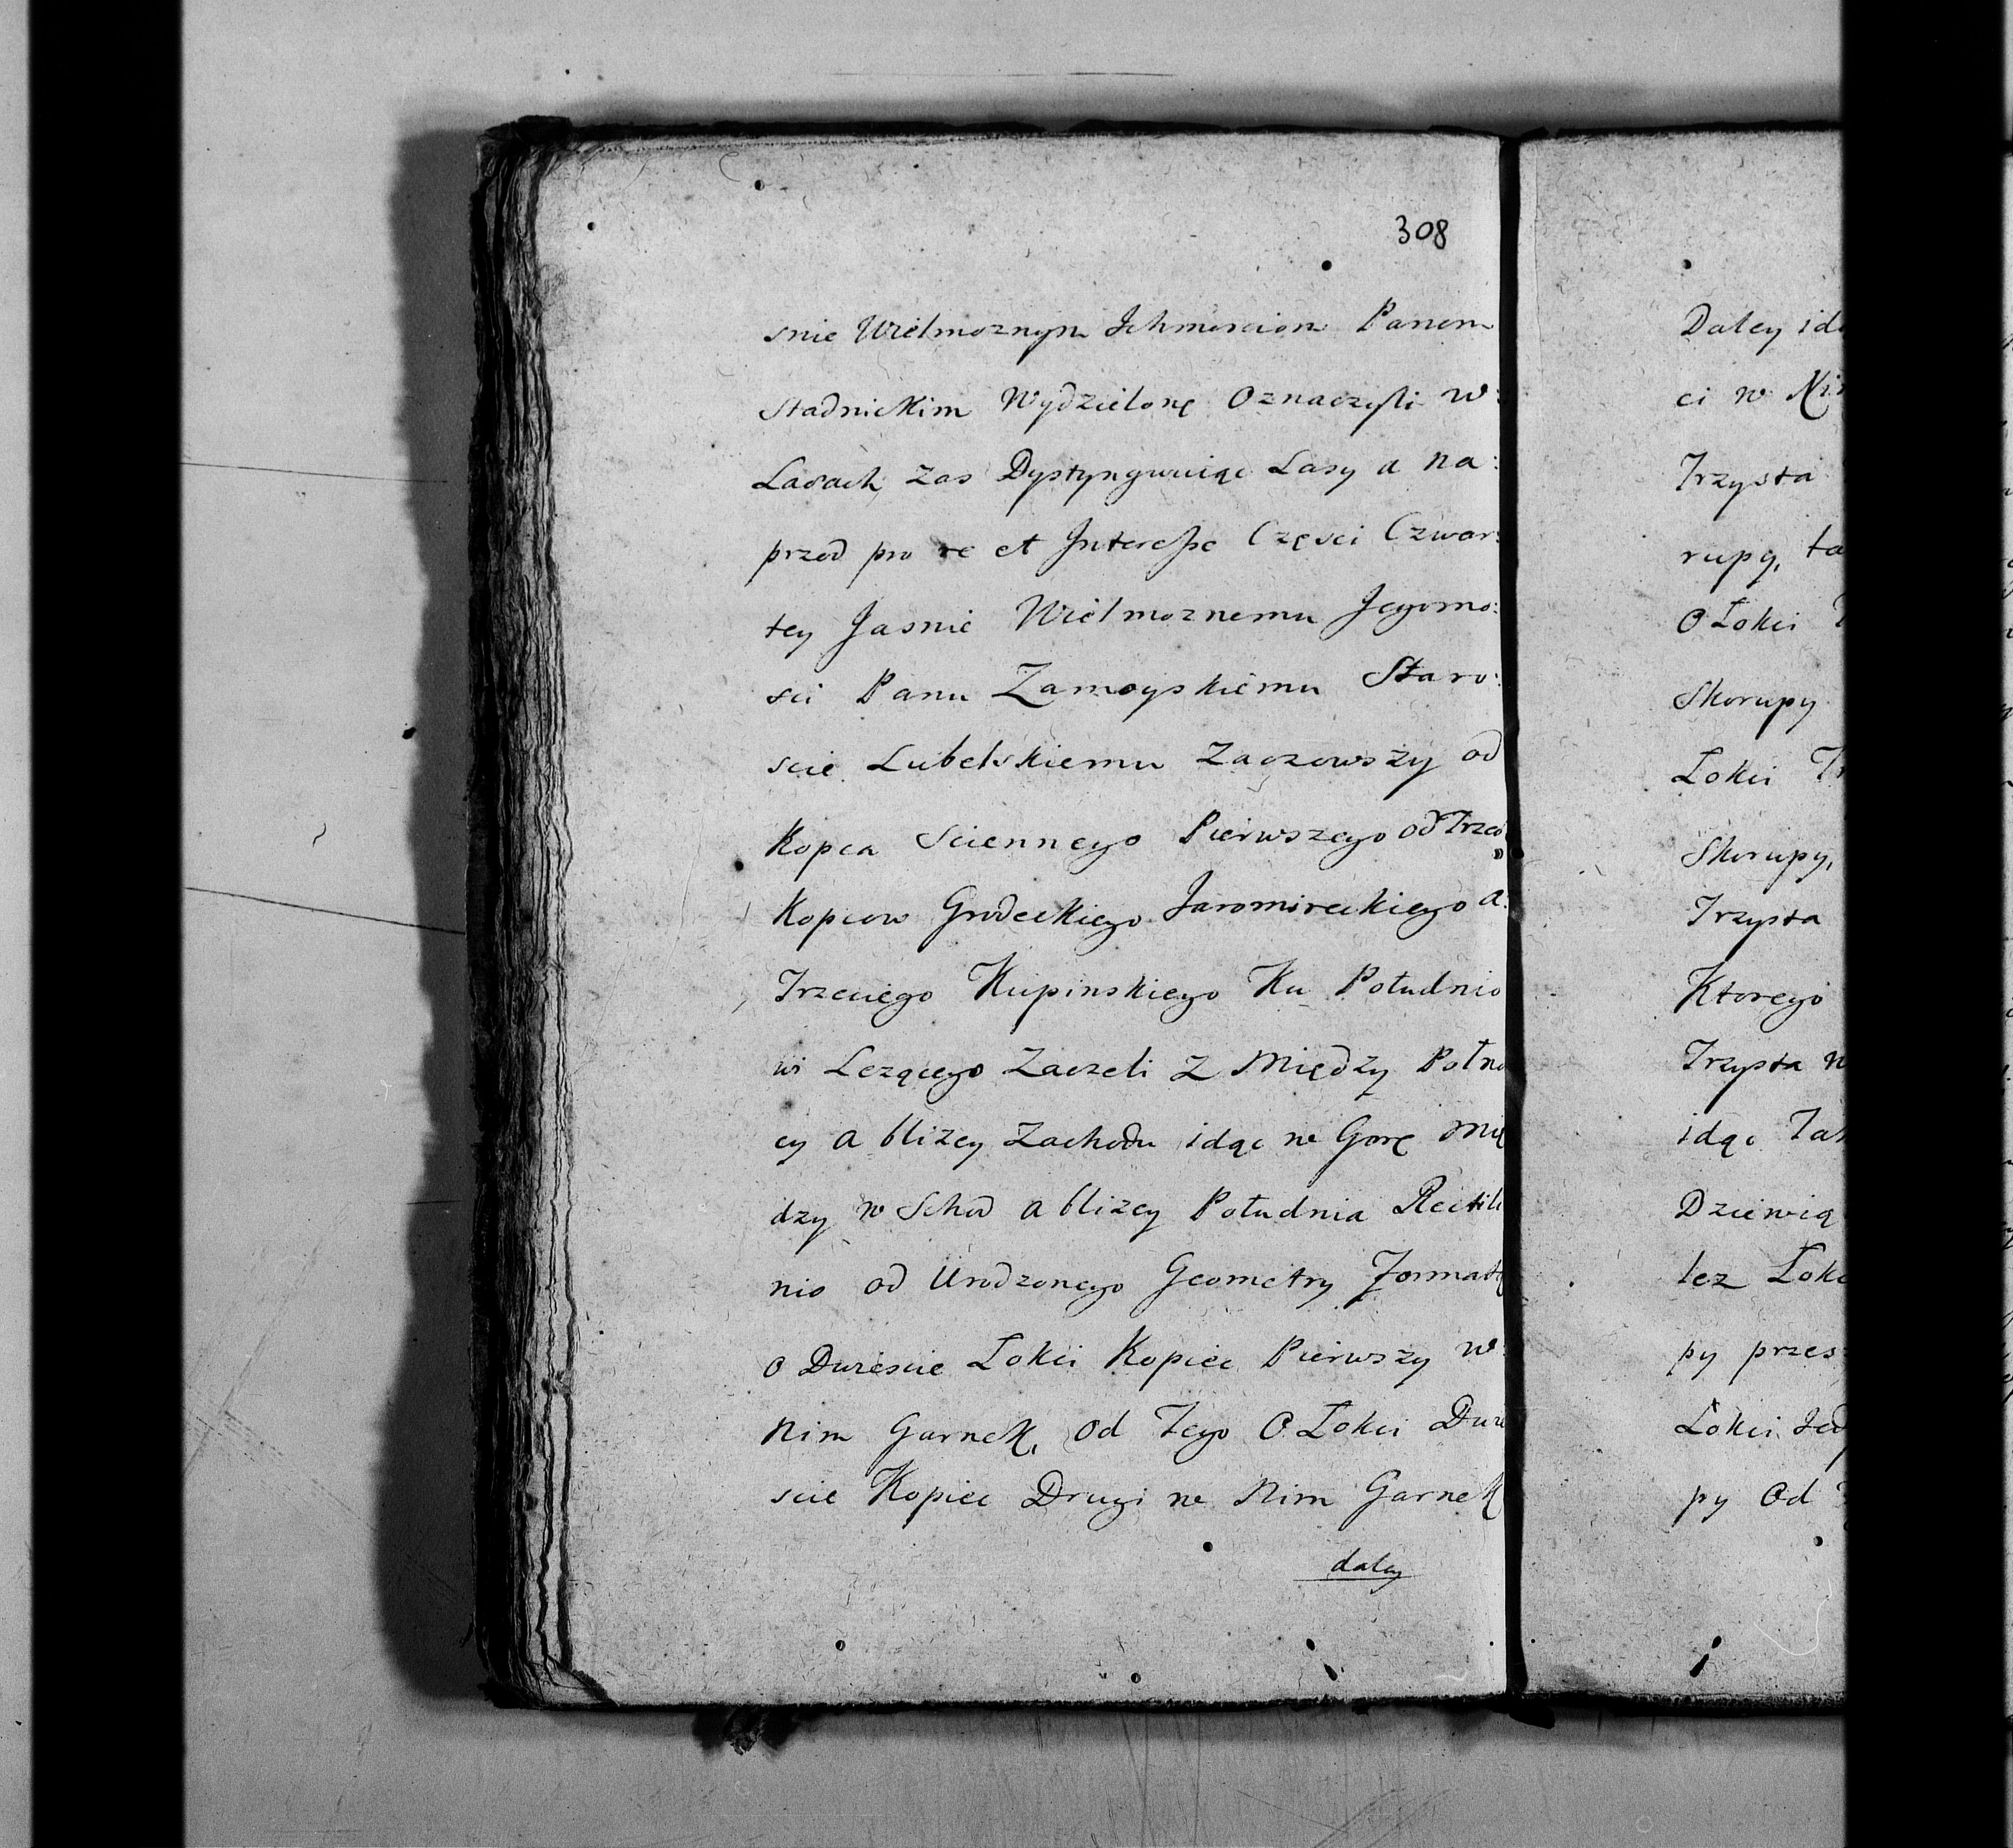 308
snie Wielmoznym Ichmościom Panom
Stadnickim Wydzielonę Oznaczyli w:
Lasach zas Dystyngwuiąc Lasy a na:
przod pro re et Interesse Częsci Czwar:
tey Jasnie Wielmoznemu Jegomo:
sci Panu Zamoyskiemu Staro:
scie Lubelskiemu Zaczowszy od
Kopca Sciennego Pierwszego od Trzeo
Kopcow Grodeckiego Jaromireckiego a:
Trzeciego Kupinskiego Ku Południo
wi Lezącego Zaczeli z Między Połno
cy a blizey Zachodu idąc w Gorę Mię
dzy w Schod a blizey Południa Rectili
nio od Urodzonego Geometry Formatę
o Dwiescie Łokci Kopiec Pierwszy w:
Nim Garnek, od Tego O Łokci Dwie
scie Kopiec Drugi w Nim Garnek
daley
Daley id
ci w Ni
Trzysta
rupy, ta
O Łokci
Skorupy
Łokci Tr
Skorupy,
Trzysta
Ktorego
Trzysta n
idąc Ta
Dziewią
lez Łok
py przes
Łokci Jed
py Od